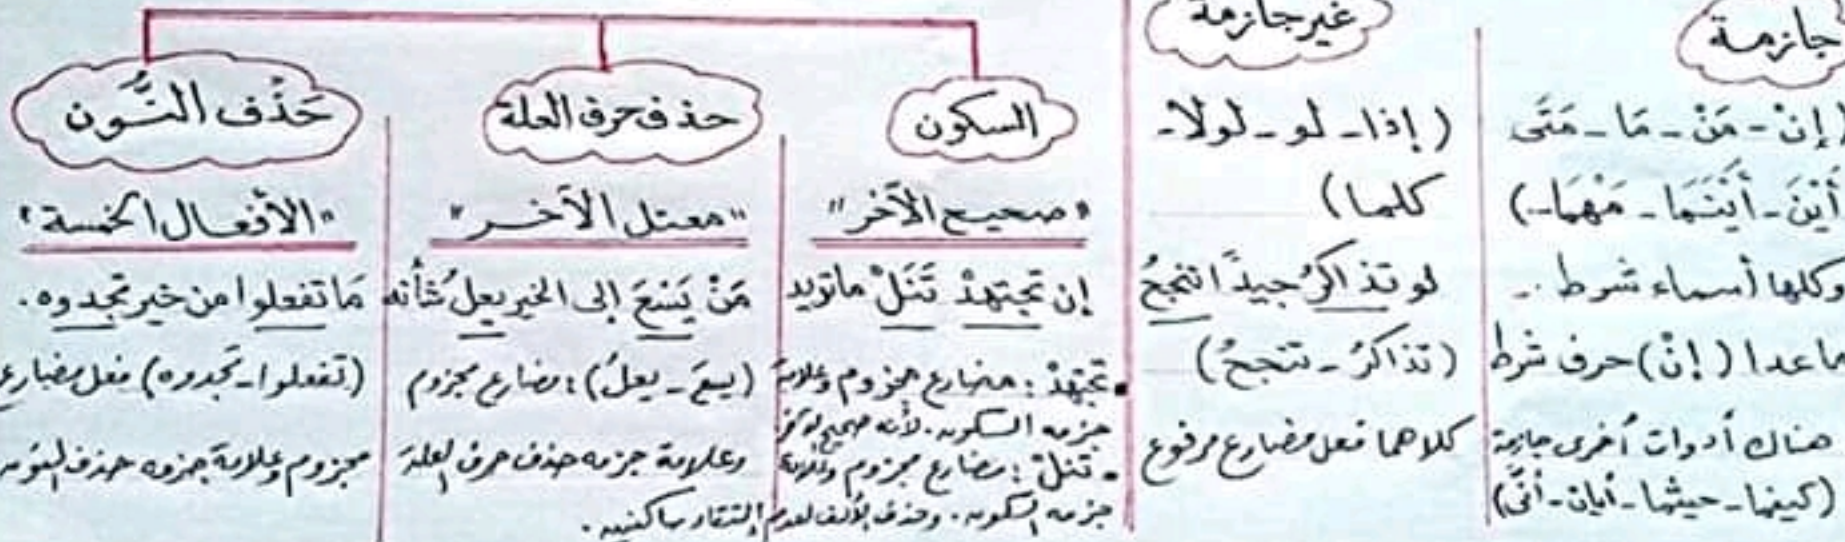 جازمة
(إنْ - مَنْ - مَا - مَتَى
أَيْنَ - أَيْنَمَا - مَهْمَا..)
وكلها أسماء شرط ..
ماعدا (إنْ) حرف شرط
هناك أدوات أخرى جازمة
(كيفما - حيثما - أيان - أنَّى)
غير جازمة
(إذا - لو - لولا -
كلما)
لو تذاكرُ جيدًا تنجحُ
(تذاكرُ - تنجحُ)
كلاهما فعل مضارع مرفوع
السكون
"صحيح الآخر"
إن تجتهدْ تَنَلْ ماتريد
• تجتهدْ : مضارع مجزوم وعلامة
جزمه السكون. لأنه صحيح الآخر
• تنلْ : مضارع مجزوم وعلامة
جزمه السكون. وحذف الألف لعدم التقاء ساكنين.
حذف حرف العلة
"معتل الآخر"
مَنْ يَسْعَ إلى الخير يعلُ شأنه
(يسعَ - يعلُ) : مضارع مجزوم
وعلامة جزمه حذف حرف العلة
حَذْف النُّون
"الأفعال الخمسة"
مَا تفعلوا من خير تجدوه.
(تفعلوا - تجدوه) فعل مضارع
مجزوم وعلامة جزمه حذف النون